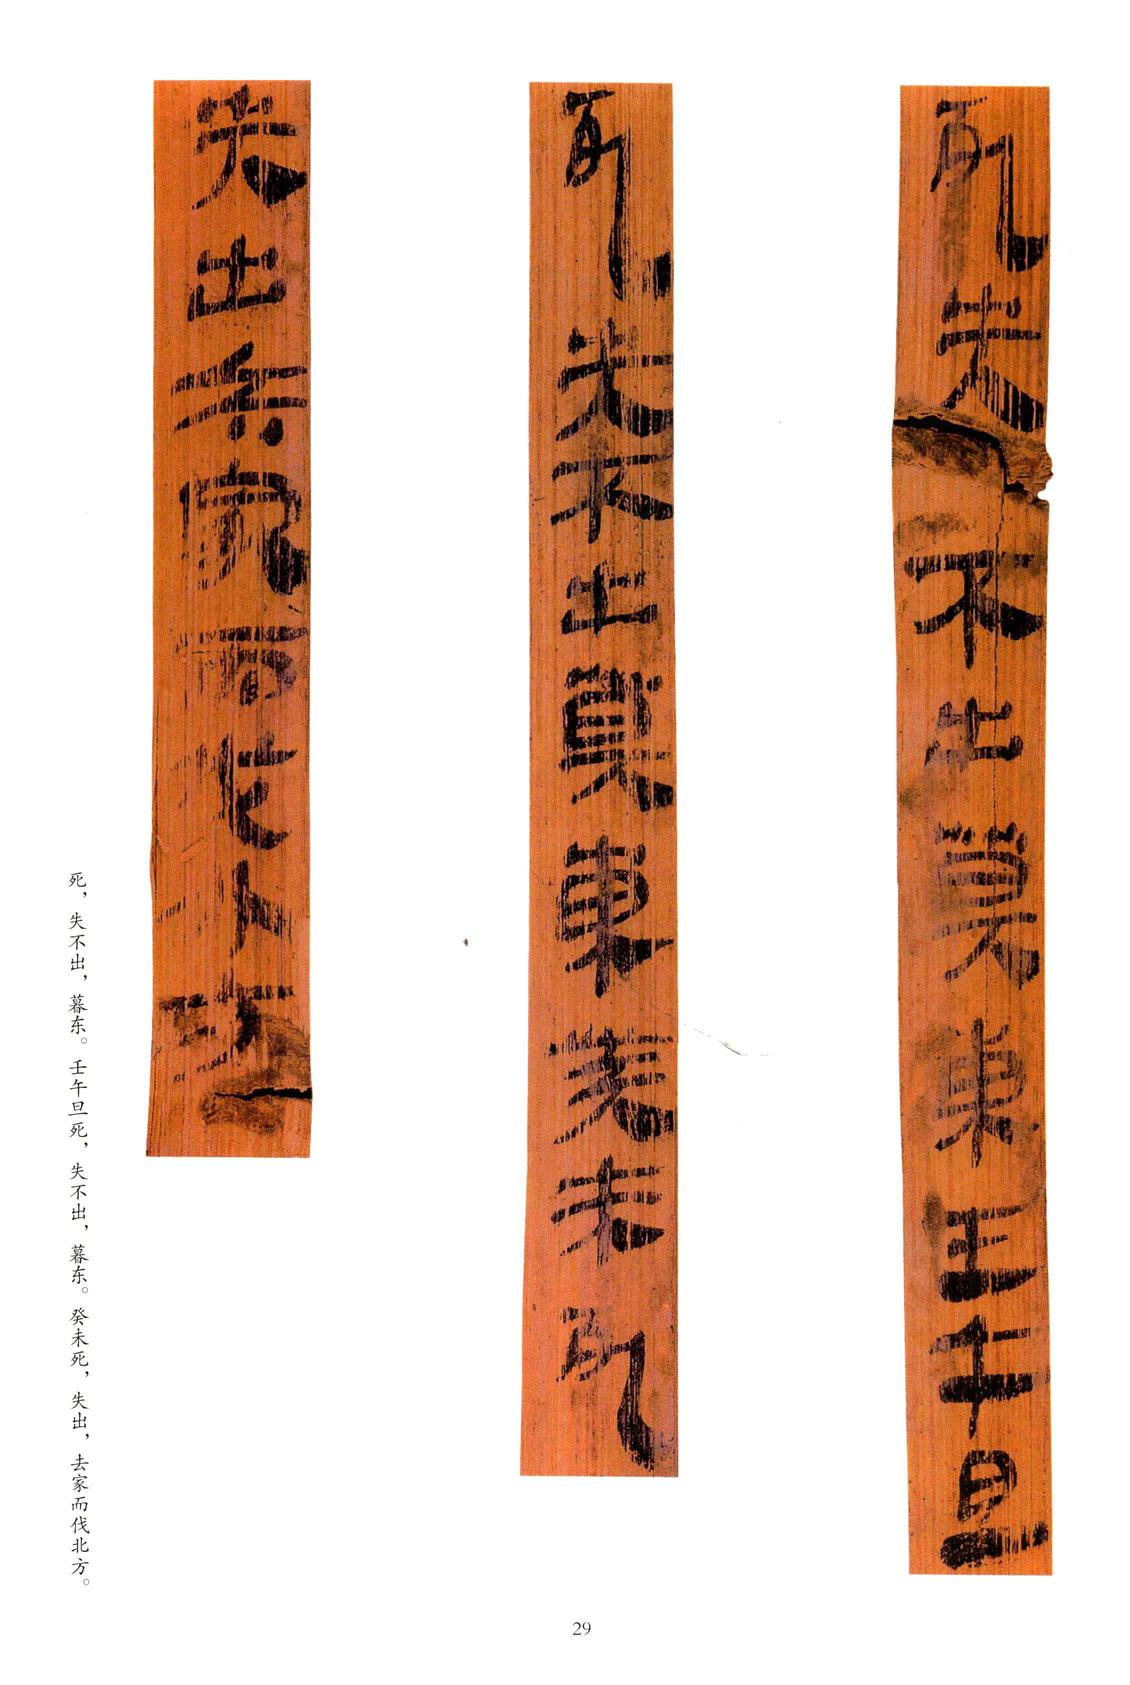 死失不出莫東壬午旦
死失不出莫東癸未死
失出去家而伐北方
死，失不出，暮东。壬午旦死，失不出，暮东。癸未死，失出，去家而伐北方。
29